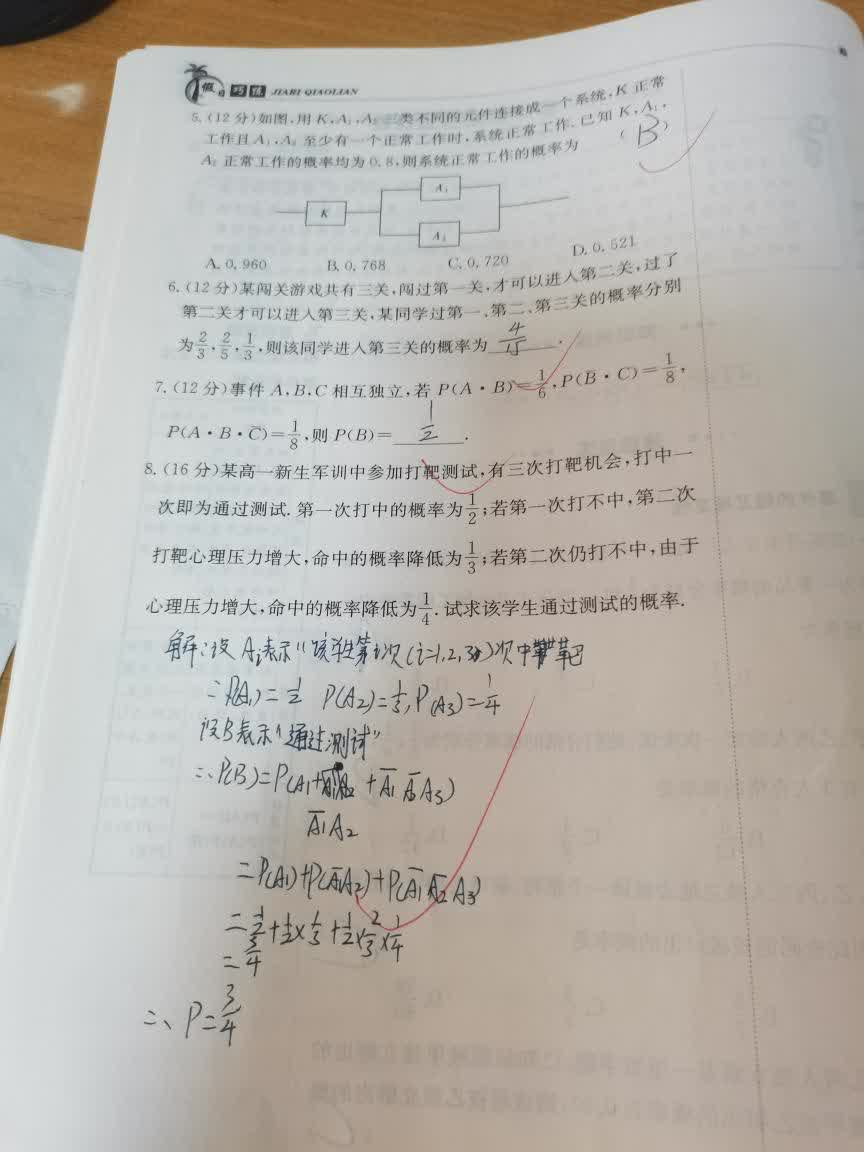 假日巧练 JIARI QIAOLIAN
5.(12分)如图,用K,A₁,A₂三类不同的元件连接成一个系统,K正常
工作且A₁,A₂至少有一个正常工作时,系统正常工作.已知K,A₁,
A₂正常工作的概率均为0.8,则系统正常工作的概率为 (B)
K
A₁
A₂
A. 0.960 B. 0.768 C. 0.720 D. 0.521
6.(12分)某闯关游戏共有三关,闯过第一关,才可以进入第二关,过了
第二关才可以进入第三关,某同学过第一、第二、第三关的概率分别
为2/3,2/5,1/3,则该同学进入第三关的概率为 4/15 .
7.(12分)事件A,B,C相互独立,若P(A·B)=1/6,P(B̄·C)=1/8,
P(A·B·C̄)=1/8,则P(B)= 1/2 .
8.(16分)某高一新生军训中参加打靶测试,有三次打靶机会,打中一
次即为通过测试.第一次打中的概率为1/2;若第一次打不中,第二次
打靶心理压力增大,命中的概率降低为1/3;若第二次仍打不中,由于
心理压力增大,命中的概率降低为1/4.试求该学生通过测试的概率.
解:设Aᵢ表示“该学生第i次(i=1,2,3)次中靶
∴P(A₁)=1/2 P(A₂)=1/3,P(A₃)=1/4
设B表示“通过测试”
∴P(B)=P(A₁+ + Ā₁Ā₂A₃)
Ā₁A₂
=P(A₁)+P(Ā₁A₂)+P(Ā₁Ā₂A₃)
=1/2+1/2×1/3+1/2×2/3×1/4
=3/4
∴P=3/4